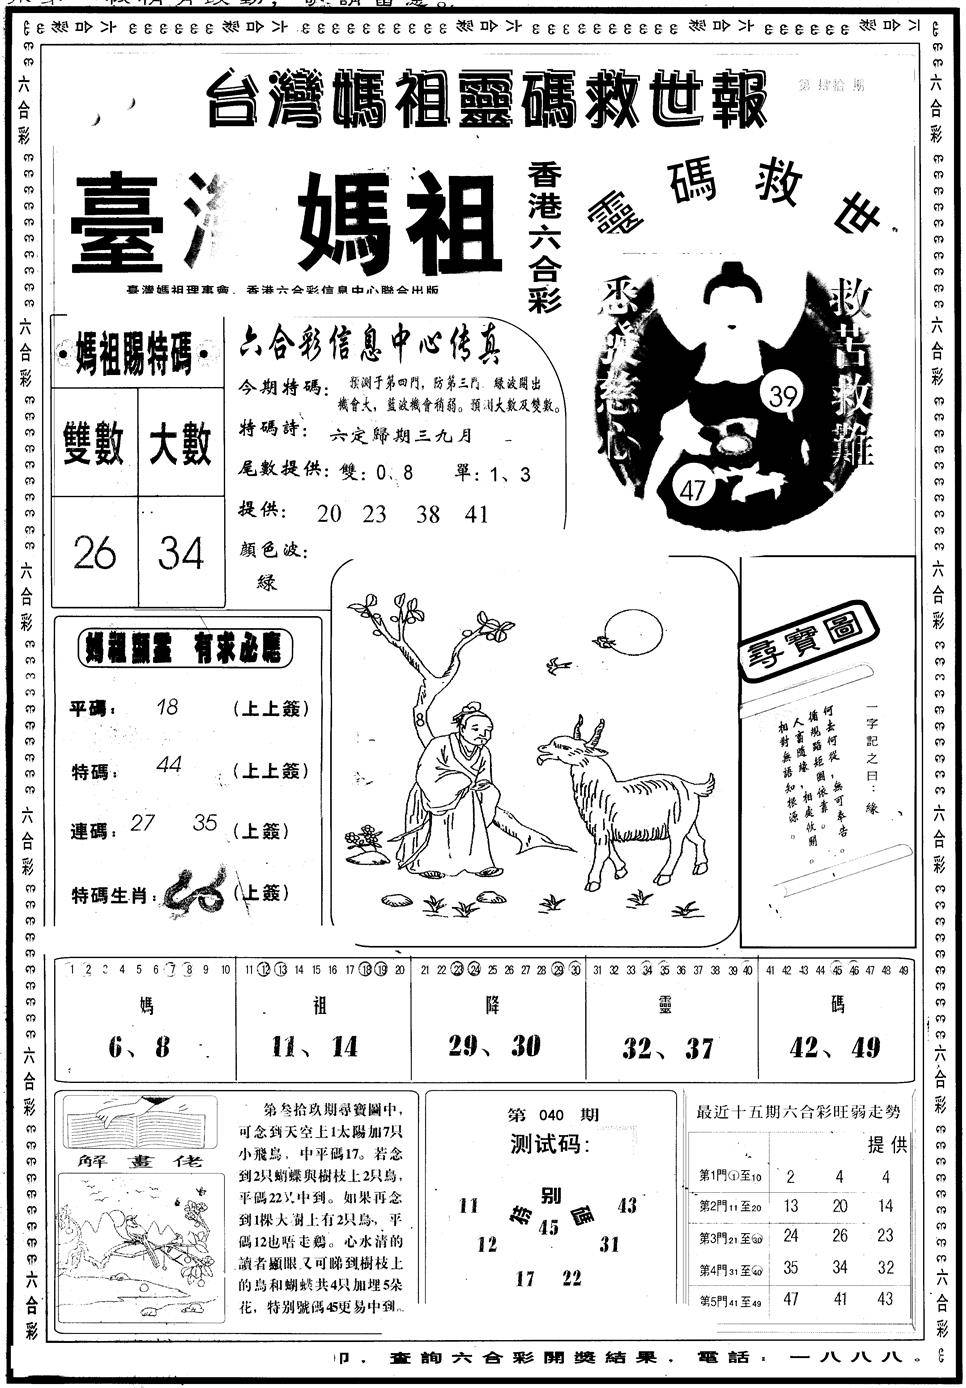 台灣媽祖靈碼救世報
第肆拾期
臺灣媽祖
香港六合彩
靈碼救世
臺灣媽祖理事會，香港六合彩信息中心聯合出版
救苦救難
39
47
·媽祖賜特碼·
雙數 大數
26 34
六合彩信息中心传真
今期特碼：預測于第四門，防第三門 綠波開出
機會大，藍波機會稍弱。預測大數及雙數。
特碼詩：六定歸期三九月
尾數提供：雙：0、8 單：1、3
提供：20 23 38 41
顏色波：
綠
媽祖顯靈 有求必應
平碼：18（上上簽）
特碼：44（上上簽）
連碼：27 35（上簽）
特碼生肖：（上簽）
8
尋寶圖
一字記之曰：緣
何去何從，無可奉告。
循規蹈矩
人畜隨緣，相處
相對無語知根源。
1 2 3 4 5 6 7 8 9 10
11 12 13 14 15 16 17 18 19 20
21 22 23 24 25 26 27 28 29 30
31 32 33 34 35 36 37 38 39 40
41 42 43 44 45 46 47 48 49
媽 祖 降 靈 碼
6、8 11、14 29、30 32、37 42、49
解畫佬
第叁拾玖期尋寶圖中，
可念到天空上1太陽加7只
小飛鳥，中平碼17。若念
到2只蝴蝶與樹枝上2只鳥，
平碼22又中到。如果再念
到1棵大樹上有2只鳥，平
碼12也唔走鷄。心水清的
讀者顯眼又可睇到樹枝上
的鳥和蝴蝶共4只加埋5朵
花，特別號碼45更易中到。
第 040 期
测试码：
特别碼
11 43
45
12 31
17 22
最近十五期六合彩旺弱走勢
提供
第1門①至10 2 4 4
第2門11至20 13 20 14
第3門21至30 24 26 23
第4門31至40 35 34 32
第5門41至49 47 41 43
印．查詢六合彩開獎結果．電話：一八八八。